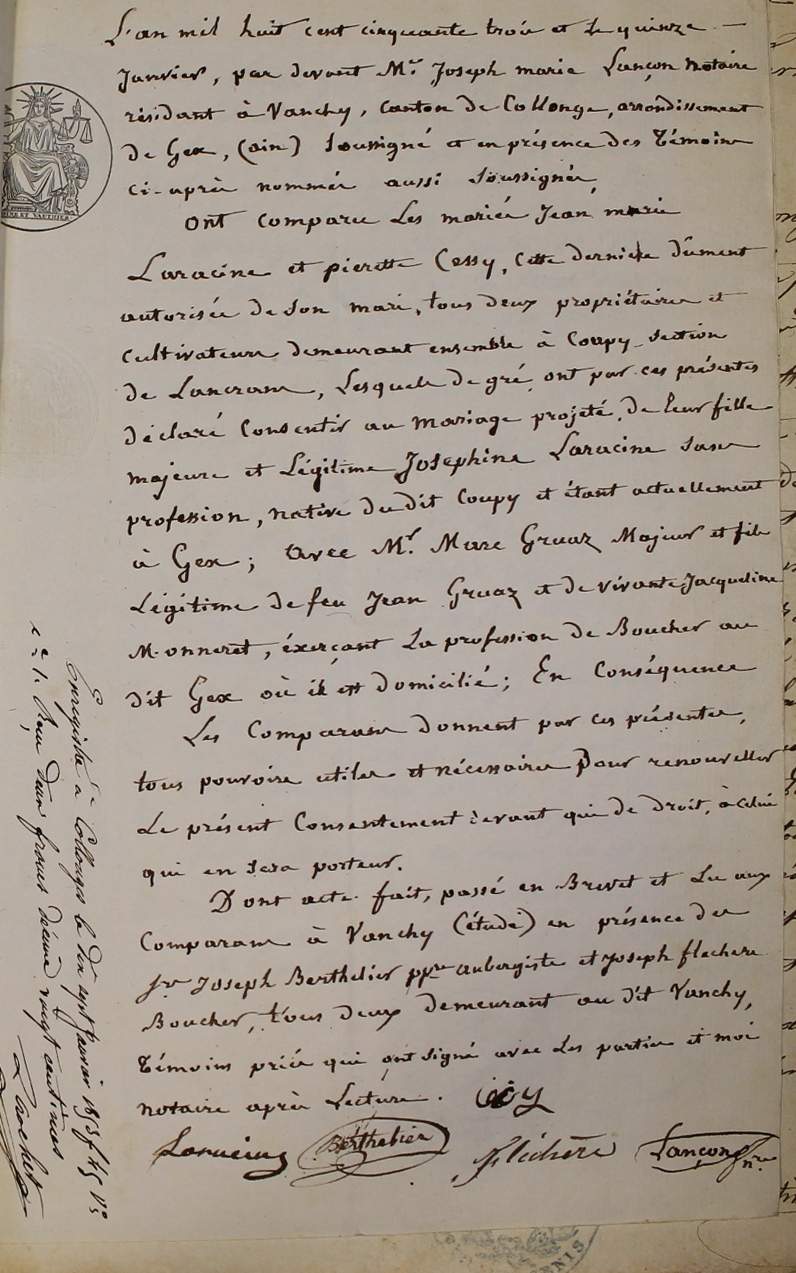 L'an mil huit cent cinquante trois et le quinze
Janvier, par devant Mr. Joseph marie Lançon notaire
résidant à Vanchy, canton de Collonge, arrondissement
de Gex, (ain) soussigné et en présence des témoins
ci-après nommés aussi soussignés,
Ont comparu Les mariés Jean marie
Laracine et pierette Cessy, cette dernière dûment
autorisée de son mari, tous deux propriétaires et
cultivateurs demeurant ensemble à Coupy, section
de Lancrans, Lesquels de gré ont par ces présentes
déclaré consentir au mariage projeté, de leur fille
majeure et Légitime Josephine Laracine sans
profession, native du dit Coupy et étant actuellement
à Gex; avec Mr. Marc Gruaz Majeur et fils
Légitime de feu Jean Gruaz et de vivante Jacqueline
Monneret, éxerçant La profession de Boucher au
dit Gex où il est domicilié; En Conséquence
Les Comparans donnent par ces présentes,
tous pouvoirs utiles et nécessaires pour renouveller
Le présent Consentement devant qui de droit, à celui
qui en sera porteur.
Dont acte fait, passé en Brevet et Lu aux
Comparans à Vanchy (étude) en présence des
Srs Joseph Berthelier ppre aubergiste et Joseph flechere
Boucher, tous deux demeurant au dit Vanchy,
témoins priés qui ont signé avec Les parties et moi
notaire après Lecture.
Laracine Berthelier fléchère Lançon nre
Enregistré à Collonges le dix sept Janvier 1853 fo 45 Vo
c 1. Reçu deux francs décime vingt centimes